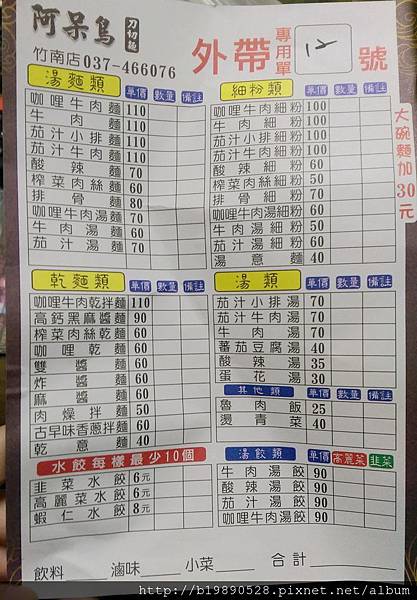 阿呆鳥 刀切麵
竹南店037-466076
外帶 專用單 12 號
大碗麵加30元
湯麵類 單價 數量 備註
咖哩牛肉麵 110
牛肉麵 110
茄汁小排麵 110
茄汁牛肉麵 110
酸辣麵 70
榨菜肉絲麵 60
排骨麵 80
咖哩牛肉湯麵 70
牛肉湯麵 60
茄汁湯麵 70
細粉類 單價 數量 備註
咖哩牛肉細粉 100
牛肉細粉 100
茄汁小排細粉 100
茄汁牛肉細粉 100
酸辣細粉 60
榨菜肉絲細粉 50
排骨細粉 70
咖哩牛肉湯細粉 60
牛肉湯細粉 50
茄汁湯細粉 60
湯意麵 40
乾麵類 單價 數量 備註
咖哩牛肉乾拌麵 110
高鈣黑麻醬麵 90
榨菜肉絲乾麵 60
咖哩乾麵 60
雙醬麵 60
炸醬麵 60
麻醬麵 60
肉燥拌麵 50
古早味香蔥拌麵 60
乾意麵 40
湯類 單價 數量 備註
茄汁小排湯 70
茄汁牛肉湯 70
牛肉湯 70
蕃茄豆腐湯 40
酸辣湯 35
蛋花湯 30
其他類 單價 數量 備註
魯肉飯 25
燙青菜 40
水餃每樣最少10個
韭菜水餃 6元
高麗菜水餃 6元
蝦仁水餃 8元
湯餃類 單價 高麗菜 韭菜
牛肉湯餃 90
酸辣湯餃 90
茄汁湯餃 90
咖哩牛肉湯餃 90
飲料 滷味 小菜 合計
http://b19890528.pixnet.net/album